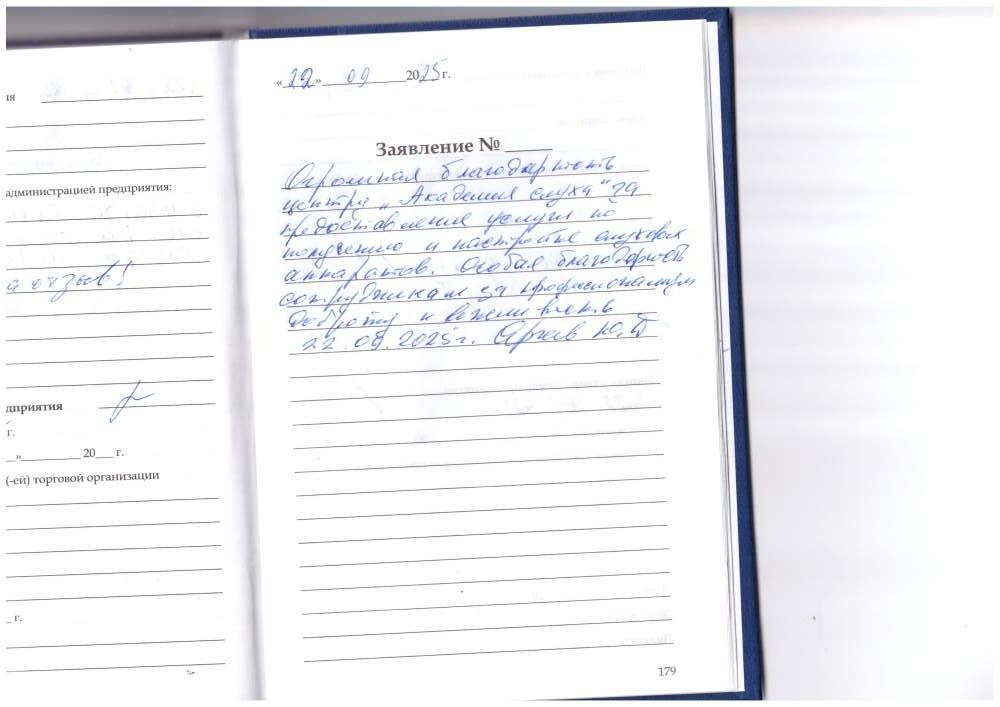 ия
администрацией предприятия:
а отзыв!
дприятия
г.
» 20 г.
(-ей) торговой организации
г.
«22» 09 2025 г.
Заявление №
Огромная благодарность
центру „Академия слуха" за
предоставление услуги по
получению и настройке слуховых
аппаратов. Особая благодарность
сотрудникам за профессионализм
доброту и вежливость
22.09.2025 г. Ю.
179